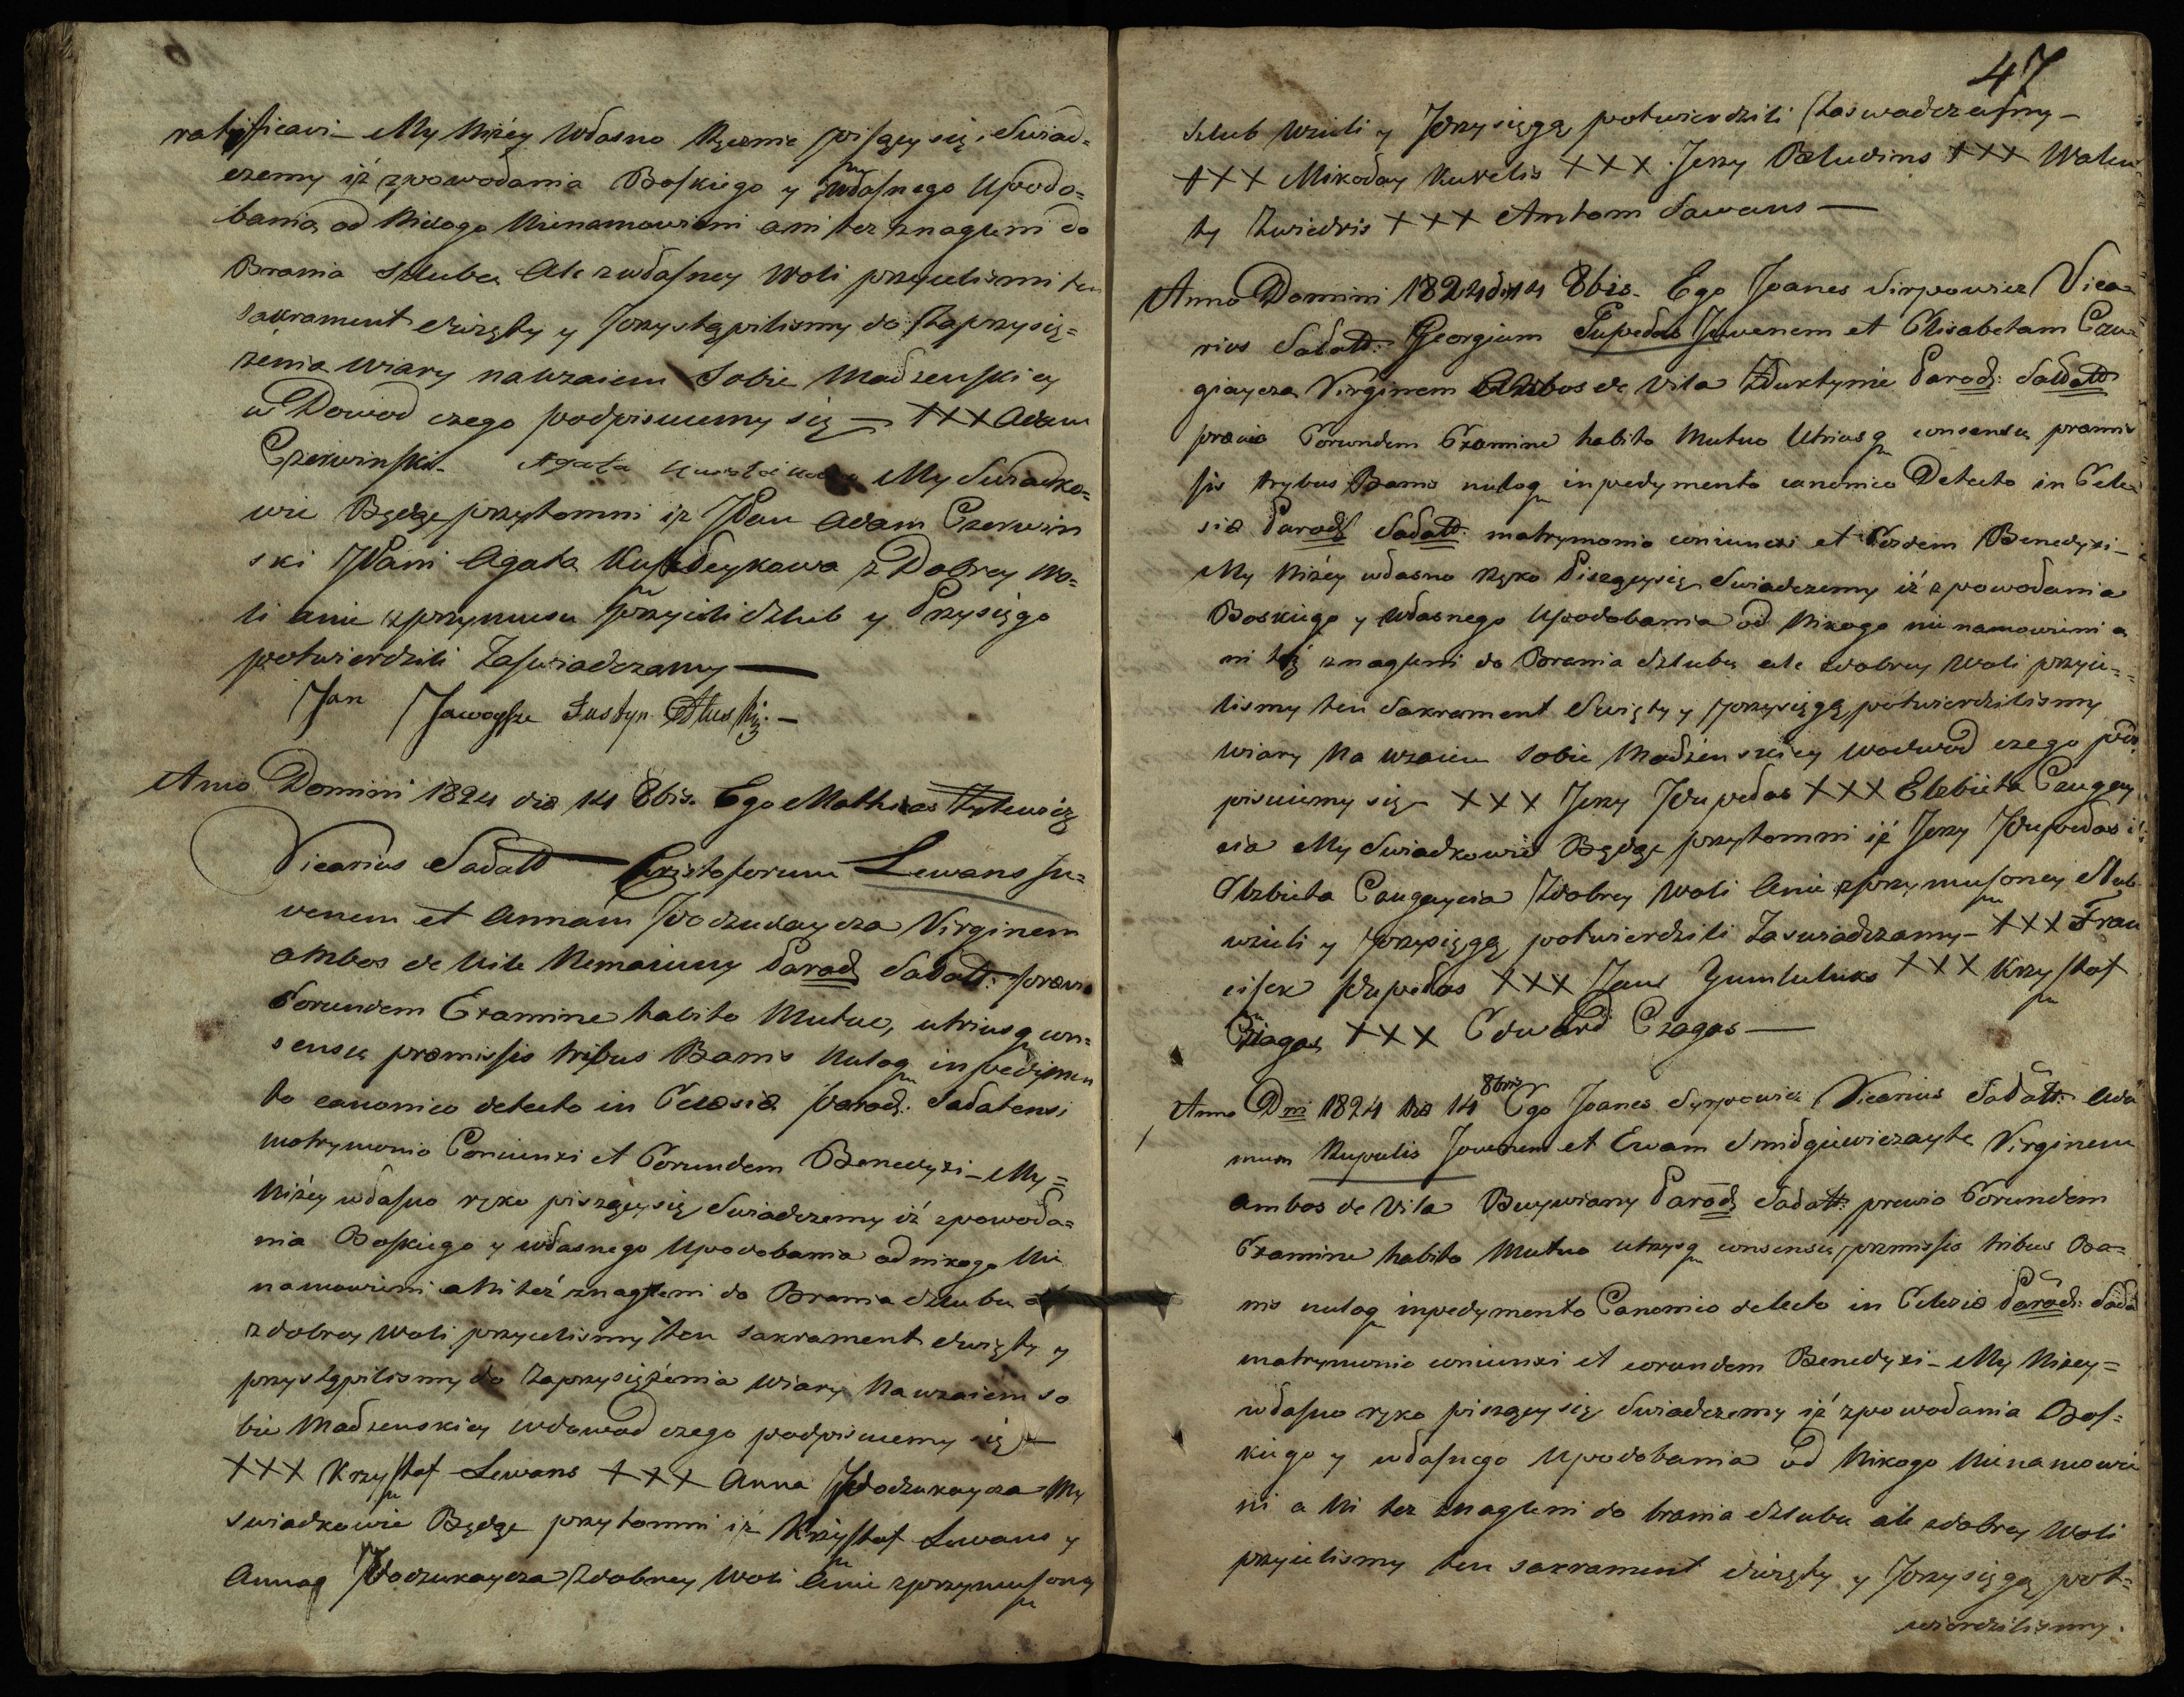 ratificavi – My Niżey Własno Ręcznie piszący się, Swiad=
czemy iż zpowodania Boskiego y własnego Upodo=
bania, od Nikogo Nienamowieni ani tez znagleni do
Brania szlubu Ale zwłasney Woli przyielismi ten
sakrament swięty y przystąpilismy do zaprzysię=
żenia wiary nawzaiem Sobie Madżenskiey
w Dowod czego podpisuiemy się – XXX Adam
Czerwinski – Agata My Swiadko=
wie Będąc przytomni iż JPan Adam Czerwin
ski JPani Agata z Dobrey Wo=
li anie zprzymusu przyieli szlub y Przysięgo
potwierdzili Zaswiadczamy —
Jan Justyn
Anno Domini 1824 die 14 8bis. Ego Mathias
Vicarius Sadatt — Cristoforum Lewans Ju=
venem et Annam Virginem
ambos de Vile Paroch Sadatt: previo
Eorundem Examine habito Mutuo, utriusq con=
sensu premissis tribus Bannis Nuloq inpedimen
to canonico detecto in Eclesia Paroch: Sadatensi
matrymonio Coniunxi et Eorundem Benedyxi – My=
Niżey własno ręko piszący się Swiadczemy iż zpowoda=
nia Boskiego y własnego Upodobania od nikogo Nie
namowieni aNi też znagleni do Brania szlubu a
z dobrey Woli przyielismy ten sakrament swięty y
przystąpilismy do zaprzysiężenia wiary Nawzaiem so
bie Madżenskiey wdowod czego podpisuiemy się –
XXX Krzysztof Lewans XXX Anna My
swiadkowie Będąc przytomni iż Krzysztof Lewans y
Anna Zdobrey Woli Anie zprzymuszoney
47
szlub wzieli y Przysięgą potwierdzili zaswadczasmy –
XXX Mikołay Kurelis XXX Jerzy XXX Walen
ty Zwiedris XXX Antom Sawans —
Anno Domini 1824 die 14 8bis. Ego Joanes Sirpowicz Vica=
rius Sadatt: Georgium Pupedas Juvenem et Elisabetam Czu=
giaycza Virginem Ambos de Vila Paroch: Sadatt
previo Eorundem Examine habito Mutuo Utriusq consensu premi
sis trybus Banns nuloq inpedymento canonico Detecto in Ecle
sia Paroch Sadatt: matrymonio coniunxi et Eosdem Benedyxi –
My Niżey własno Ręko Piszący się Swiadczemy iż zpowodania
Boskiego y Własnego Upodobania od Nikogo nie namowieni a
ni też znagleni do Brania szlubu ale zdobrey Woli przyie=
lismy ten Sakrament Swięty y przysięgą potwierdzilismy
wiary Na wzaiem Sobie Madżenskiey wdowod czego pod
pisuiemy się – XXX Jerzy Pupedas XXX Elzbieta Czugay
cia My Swiadkowie Będąc przytomni iż Jerzy Pupedas i
Elzbieta Czugaycia Zdobrey Woli Anie zprzymuszoney szlub
wzieli y przysięgą potwierdzili Zaswiadczamy – XXX Fran
ciszek Pupedas XXX Jans XXX Krzysztof
Czagas XXX Edward Czagas —
Anno Dni 1824 die 14 8bris Ego Joanes Syrpowicz Vicarius Sadatt: Ada
mum Rupelis Jouenem et Ewam Smidgiewiczayte Virginem
ambos de Vila Buywiany Paroch Sadatt: previo Eorundem
Examine habito Mutuo utrysq consensu premissis tribus Ba=
nis nuloq inpedymento Canonico detecto in Eclezia Paroch: Sada
matrymonio coniunxi et eorundem Benedyxi – My Niżey=
własno ręko piszący się Swiadczemy iż zpowodania Bos=
kiego y własnego Upodobania od Nikogo Nie namowie
ni a Ni tez znagleni do brania szlubu ale zdobrey Woli
przyielismy ten sakrament swięty y Przysięgą pot=
wierdzilismy.